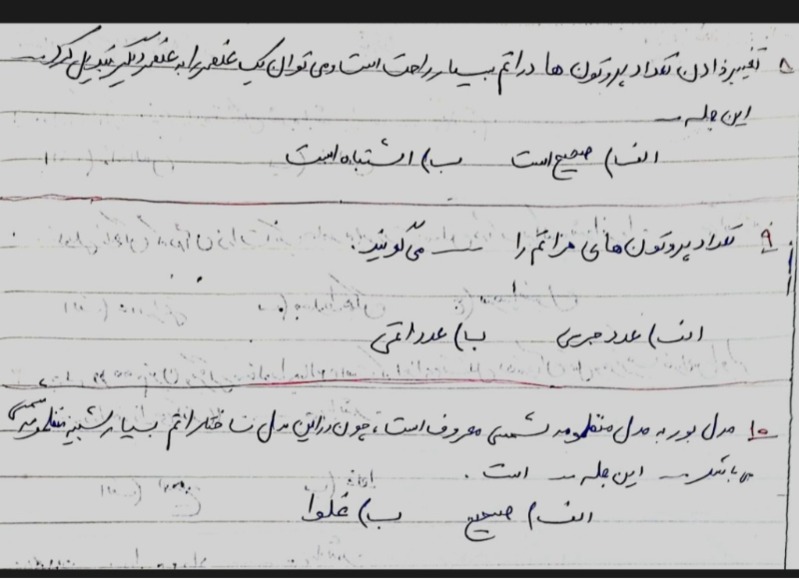 ۸ تغییر دادن تعداد پروتون ها در اتم بسیار راحت است و می توان یک عنصر را به عنصر دیگر تبدیل کرد.
این جمله ـ
الف) صحیح است ب) اشتباه است
۹ تعداد پروتون های هر اتم را ـــ می گویند.
الف) عدد جرمی ب) عدد اتمی
۱۰ مدل بور به مدل منظومه شمسی معروف است، چون در این مدل ساختار اتم بسیار شبیه منظومه شمسی
می باشد ـ این جمله ـ است.
الف) صحیح ب) غلط